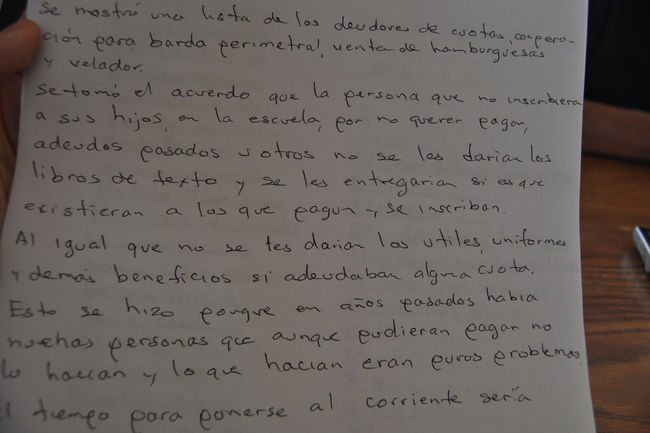 Se mostró una lista de los deudores de cuotas, coopera-
ción para barda perimetral, venta de hamburguesas
y velador.
Se tomó el acuerdo que la persona que no inscribiera
a sus hijos en la escuela, por no querer pagar,
adeudos pasados u otros no se les darian los
libros de texto y se les entregarian si es que
existieran a los que pagun y se inscriban.
Al igual que no se les darian los utiles, uniformes
y demás beneficios si adeudaban alguna cuota.
Esto se hizo porque en años pasados habia
muchas personas que aunque pudieran pagar no
lo hacían y lo que hacían eran puros problemas.
El tiempo para ponerse al corriente sería